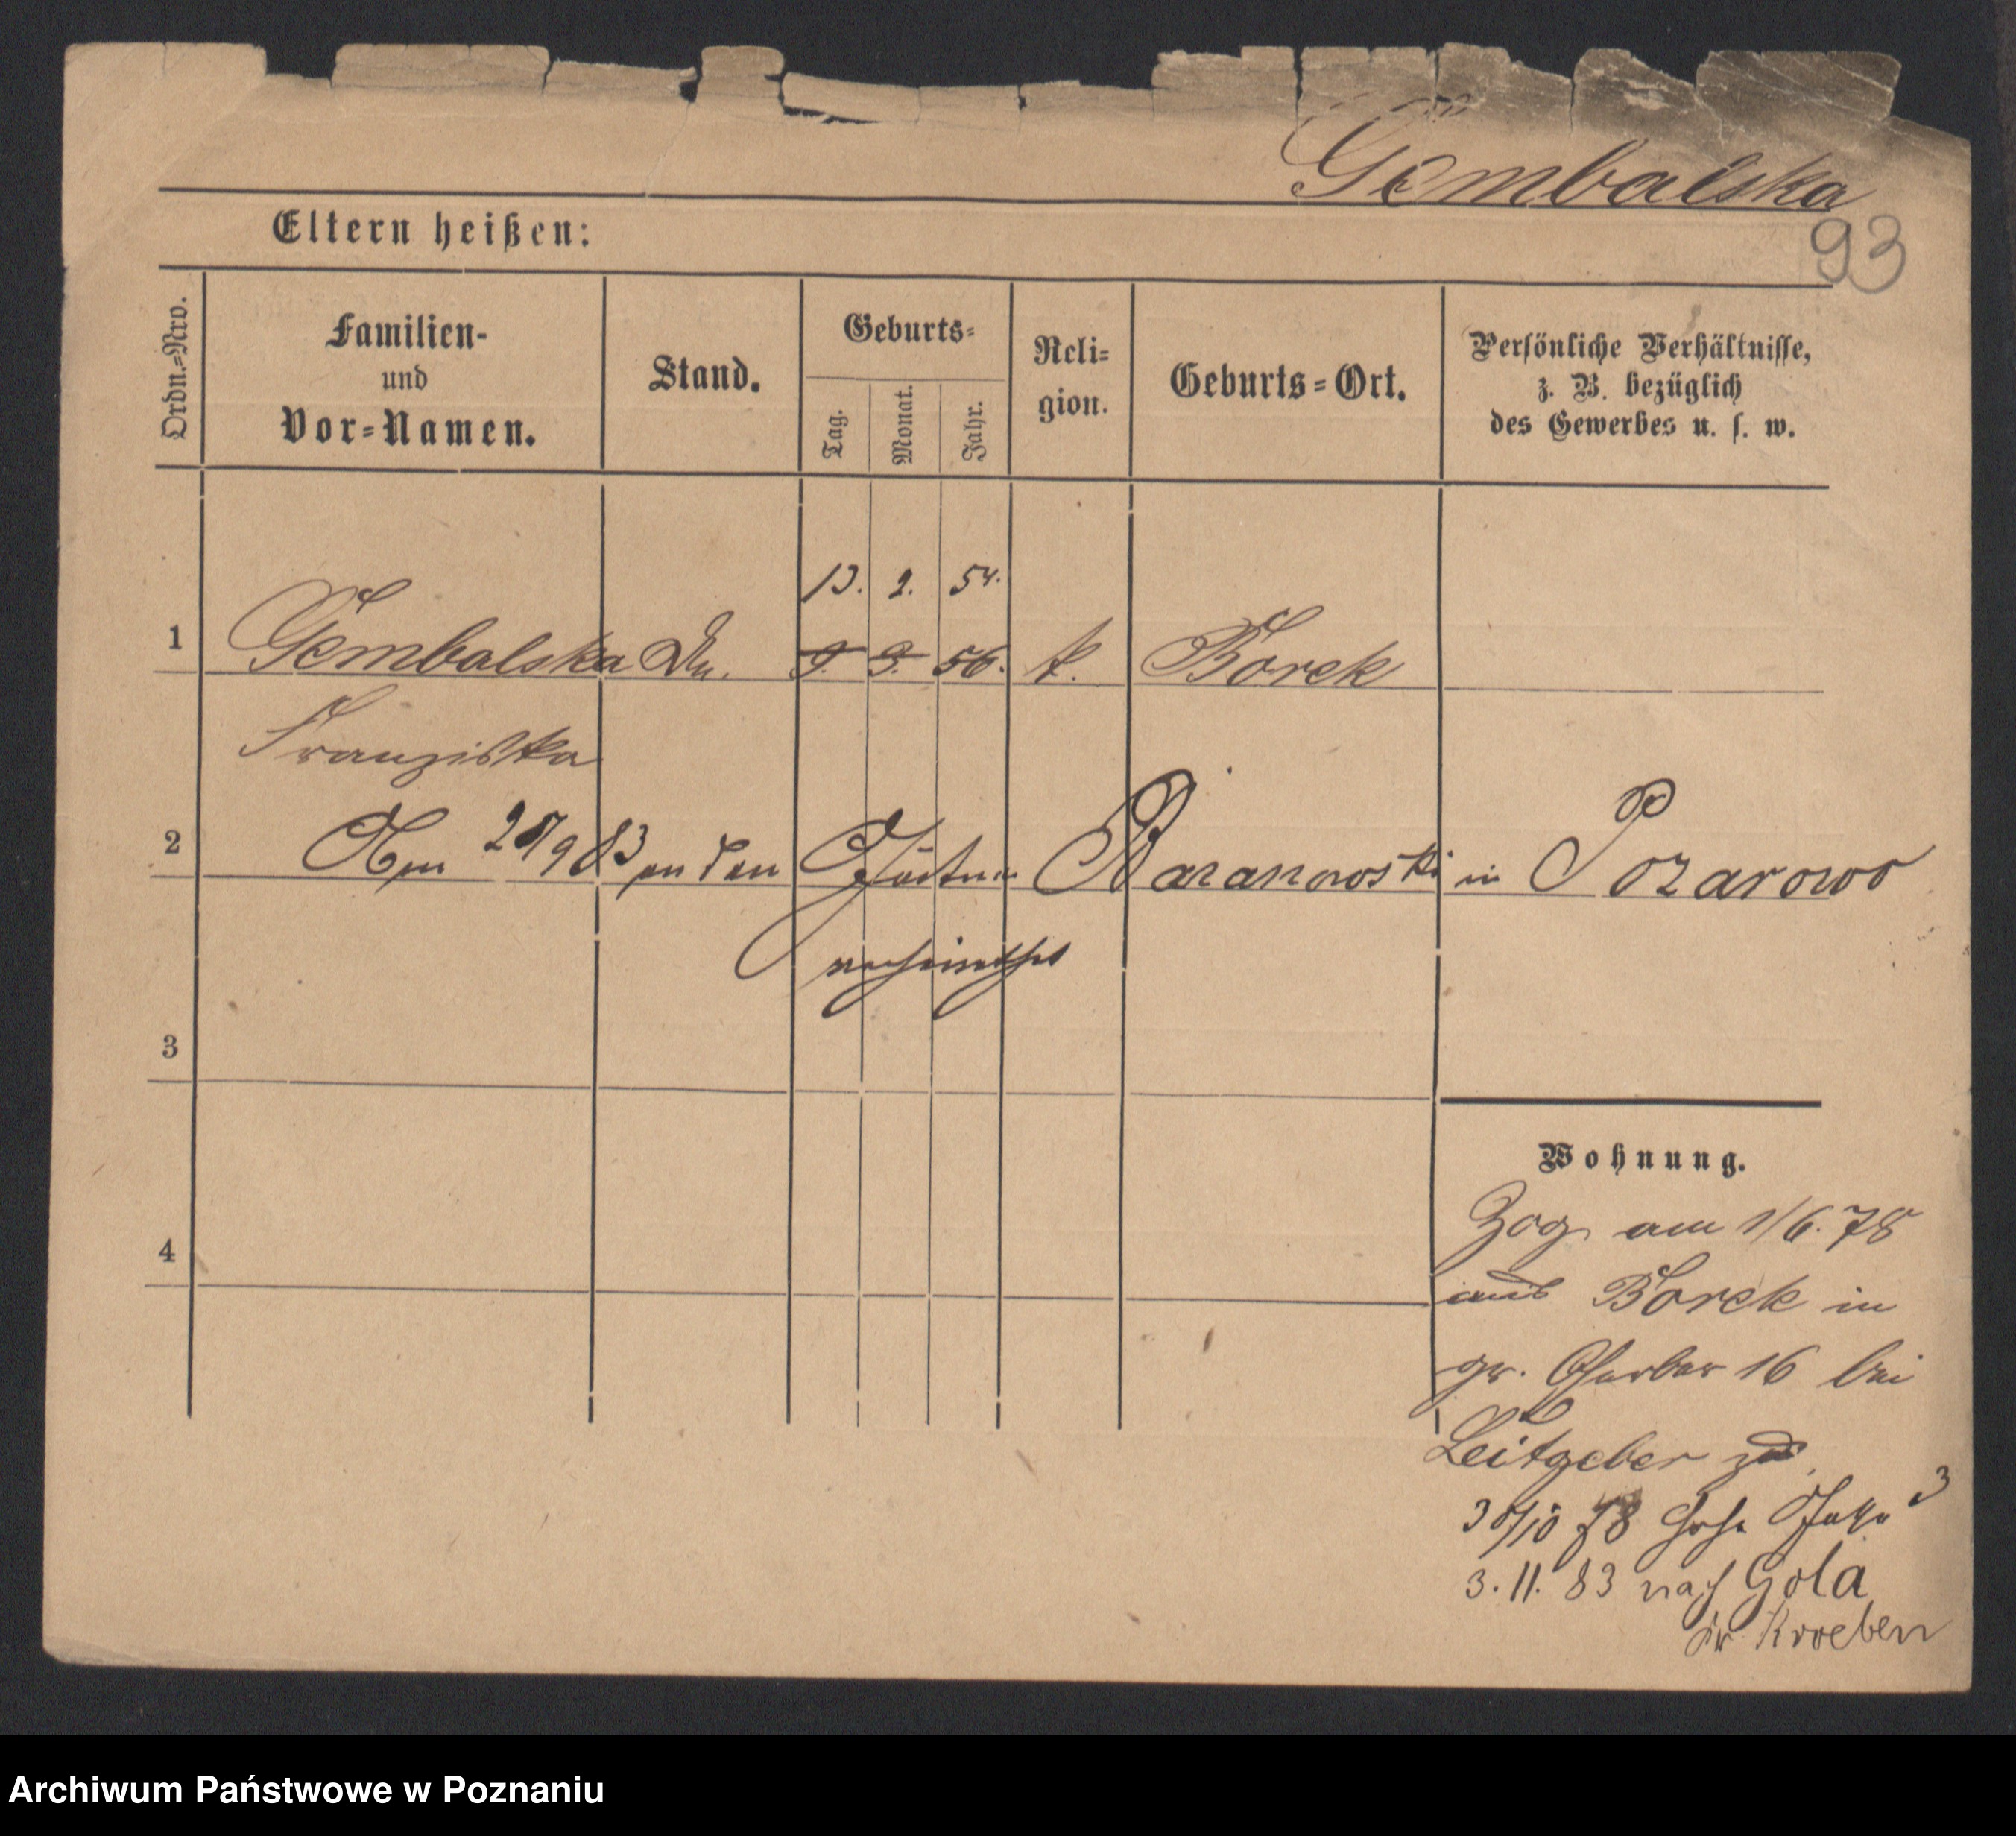 Gembalska
93
Eltern heißen:
Ordn.=Nro.
Familien-
und
Vor=Namen.
Stand.
Geburts=
Tag.
Monat.
Jahr.
Reli=
gion.
Geburts=Ort.
Persönliche Verhältnisse,
z. B. bezüglich
des Gewerbes u. s. w.
13. 2. 54.
1 Gembalska 9. 3. 56. k. Borek
Franziska
2 Am 9 83 an den Gärtner Baranowski in Pozarowo
verheirathet
3
Wohnung.
4
Zog am 1/6. 78
aus Borek in
gr. Gerber 16 bei
Leitgeber zu.
30/10 78 Hohe Gasse 3
3. 11. 83 nach Gola
Kr Kroeben
Archiwum Państwowe w Poznaniu